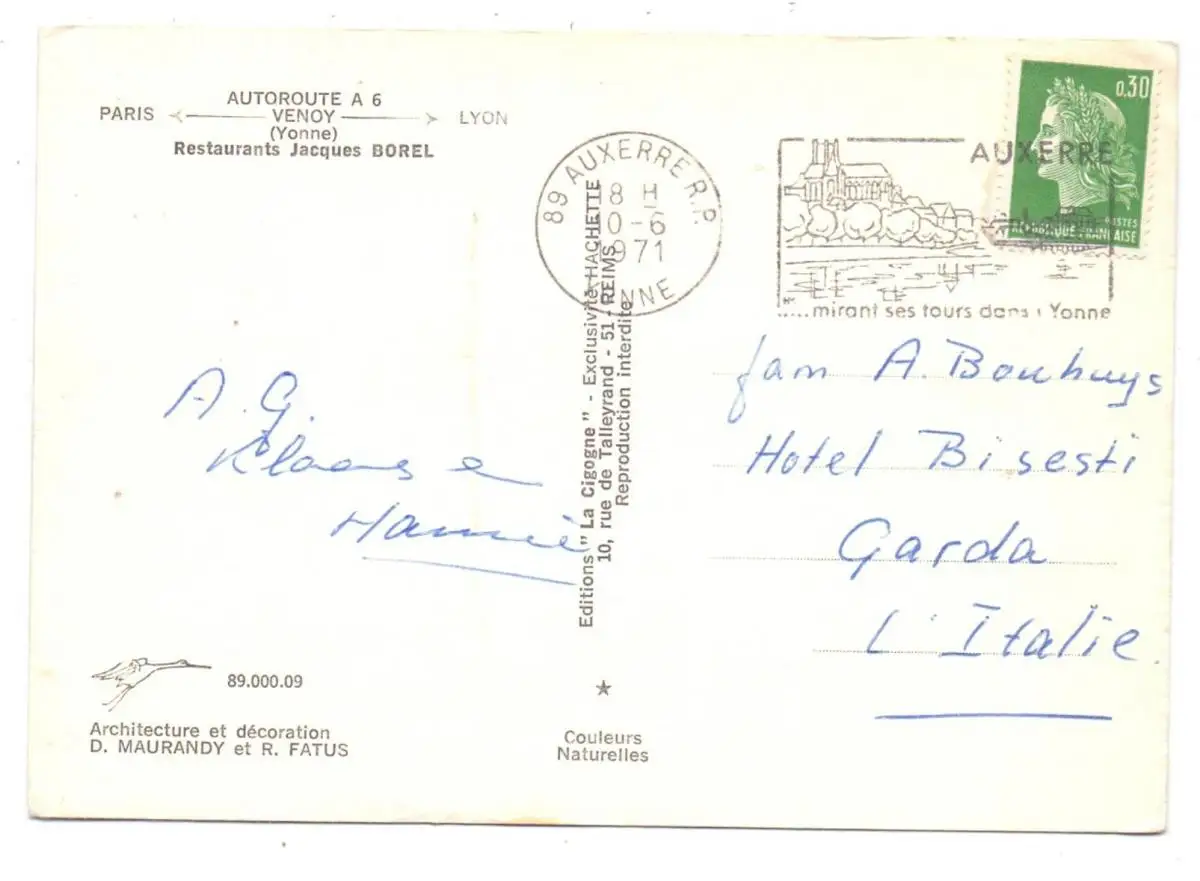 AUTOROUTE A 6
PARIS VENOY LYON
(Yonne)
Restaurants Jacques BOREL
89 AUXERRE R.P.
8 H
0-6
1971
YONNE
AUXERRE
.....mirant ses tours dans l'Yonne
0,30
POSTES
REPUBLIQUE FRANÇAISE
A. G.
Klaas e
Hannie
fam A. Bouhuys
Hotel Bisesti
Garda
l'Italie.
Editions "La Cigogne" - Exclusivité HACHETTE
10, rue de Talleyrand - 51 - REIMS
Reproduction interdite
89.000.09
Architecture et décoration
D. MAURANDY et R. FATUS
Couleurs
Naturelles